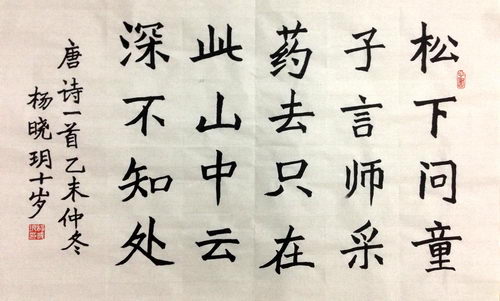 松下问童
子言师采
药去只在
此山中云
深不知处
唐诗一首乙未仲冬
杨晓玥十岁